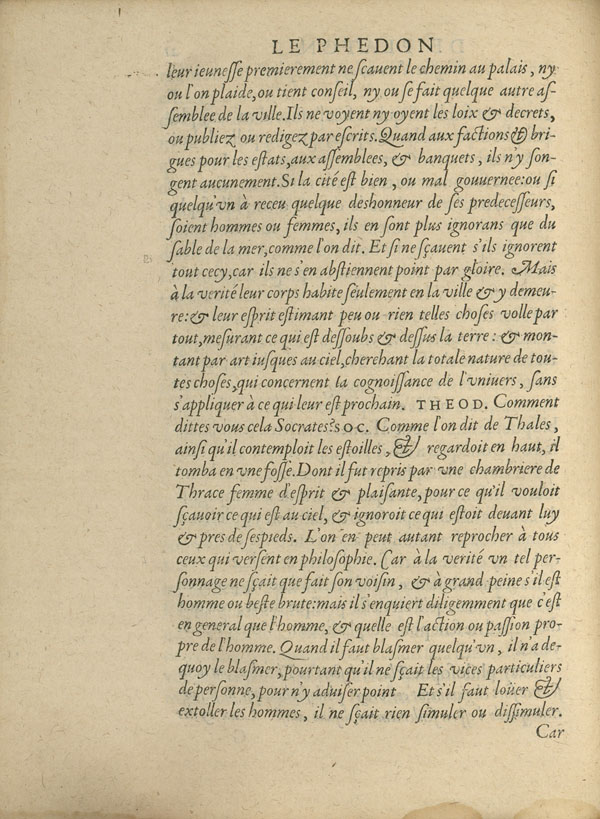 LE PHEDON
leur ieunesse premierement ne scauent le chemin au palais, ny
ou l'on plaide, ou tient conseil, ny ou se fait quelque autre as-
semblee de la ville. Ils ne voyent ny oyent les loix & decrets,
ou publiez ou redigez par escrits. Quand aux factions & bri-
gues pour les estats, aux assemblees, & banquets, ils n'y son-
gent aucunement. Si la cité est bien, ou mal gouuernee: ou si
quelqu'vn à receu quelque deshonneur de ses predecesseurs,
soient hommes ou femmes, ils en sont plus ignorans que du
sable de la mer, comme l'on dit. Et si ne sçauent s'ils ignorent
tout cecy, car ils ne s'en abstiennent point par gloire. Mais
à la verité leur corps habite seulement en la ville & y demeu-
re: & leur esprit estimant peu ou rien telles choses volle par
tout, mesurant ce qui est dessoubs & dessus la terre: & mon-
tant par art iusques au ciel, cherchant la totale nature de tou-
tes choses, qui concernent la cognoissance de l'vniuers, sans
s'appliquer à ce qui leur est prochain. THEOD. Comment
dittes vous cela Socrates? SOC. Comme l'on dit de Thales,
ainsi qu'il contemploit les estoilles, & regardoit en haut, il
tomba en vne fosse. Dont il fut repris par vne chambriere de
Thrace femme d'esprit & plaisante, pour ce qu'il vouloit
sçauoir ce qui est au ciel, & ignoroit ce qui estoit deuant luy
& pres de ses pieds. L'on en peut autant reprocher à tous
ceux qui versent en philosophie. Car à la verité vn tel per-
sonnage ne sçait que fait son voisin, & à grand peine s'il est
homme ou beste brute: mais il s'enquiert diligemment que c'est
en general que l'homme, & quelle est l'action ou passion pro-
pre de l'homme. Quand il faut blasmer quelqu'vn, il n'a de-
quoy le blasmer, pourtant qu'il ne sçait les vices particuliers
de personne, pour n'y aduiser point Et s'il faut loüer &
extoller les hommes, il ne sçait rien simuler ou dissimuler.
Car